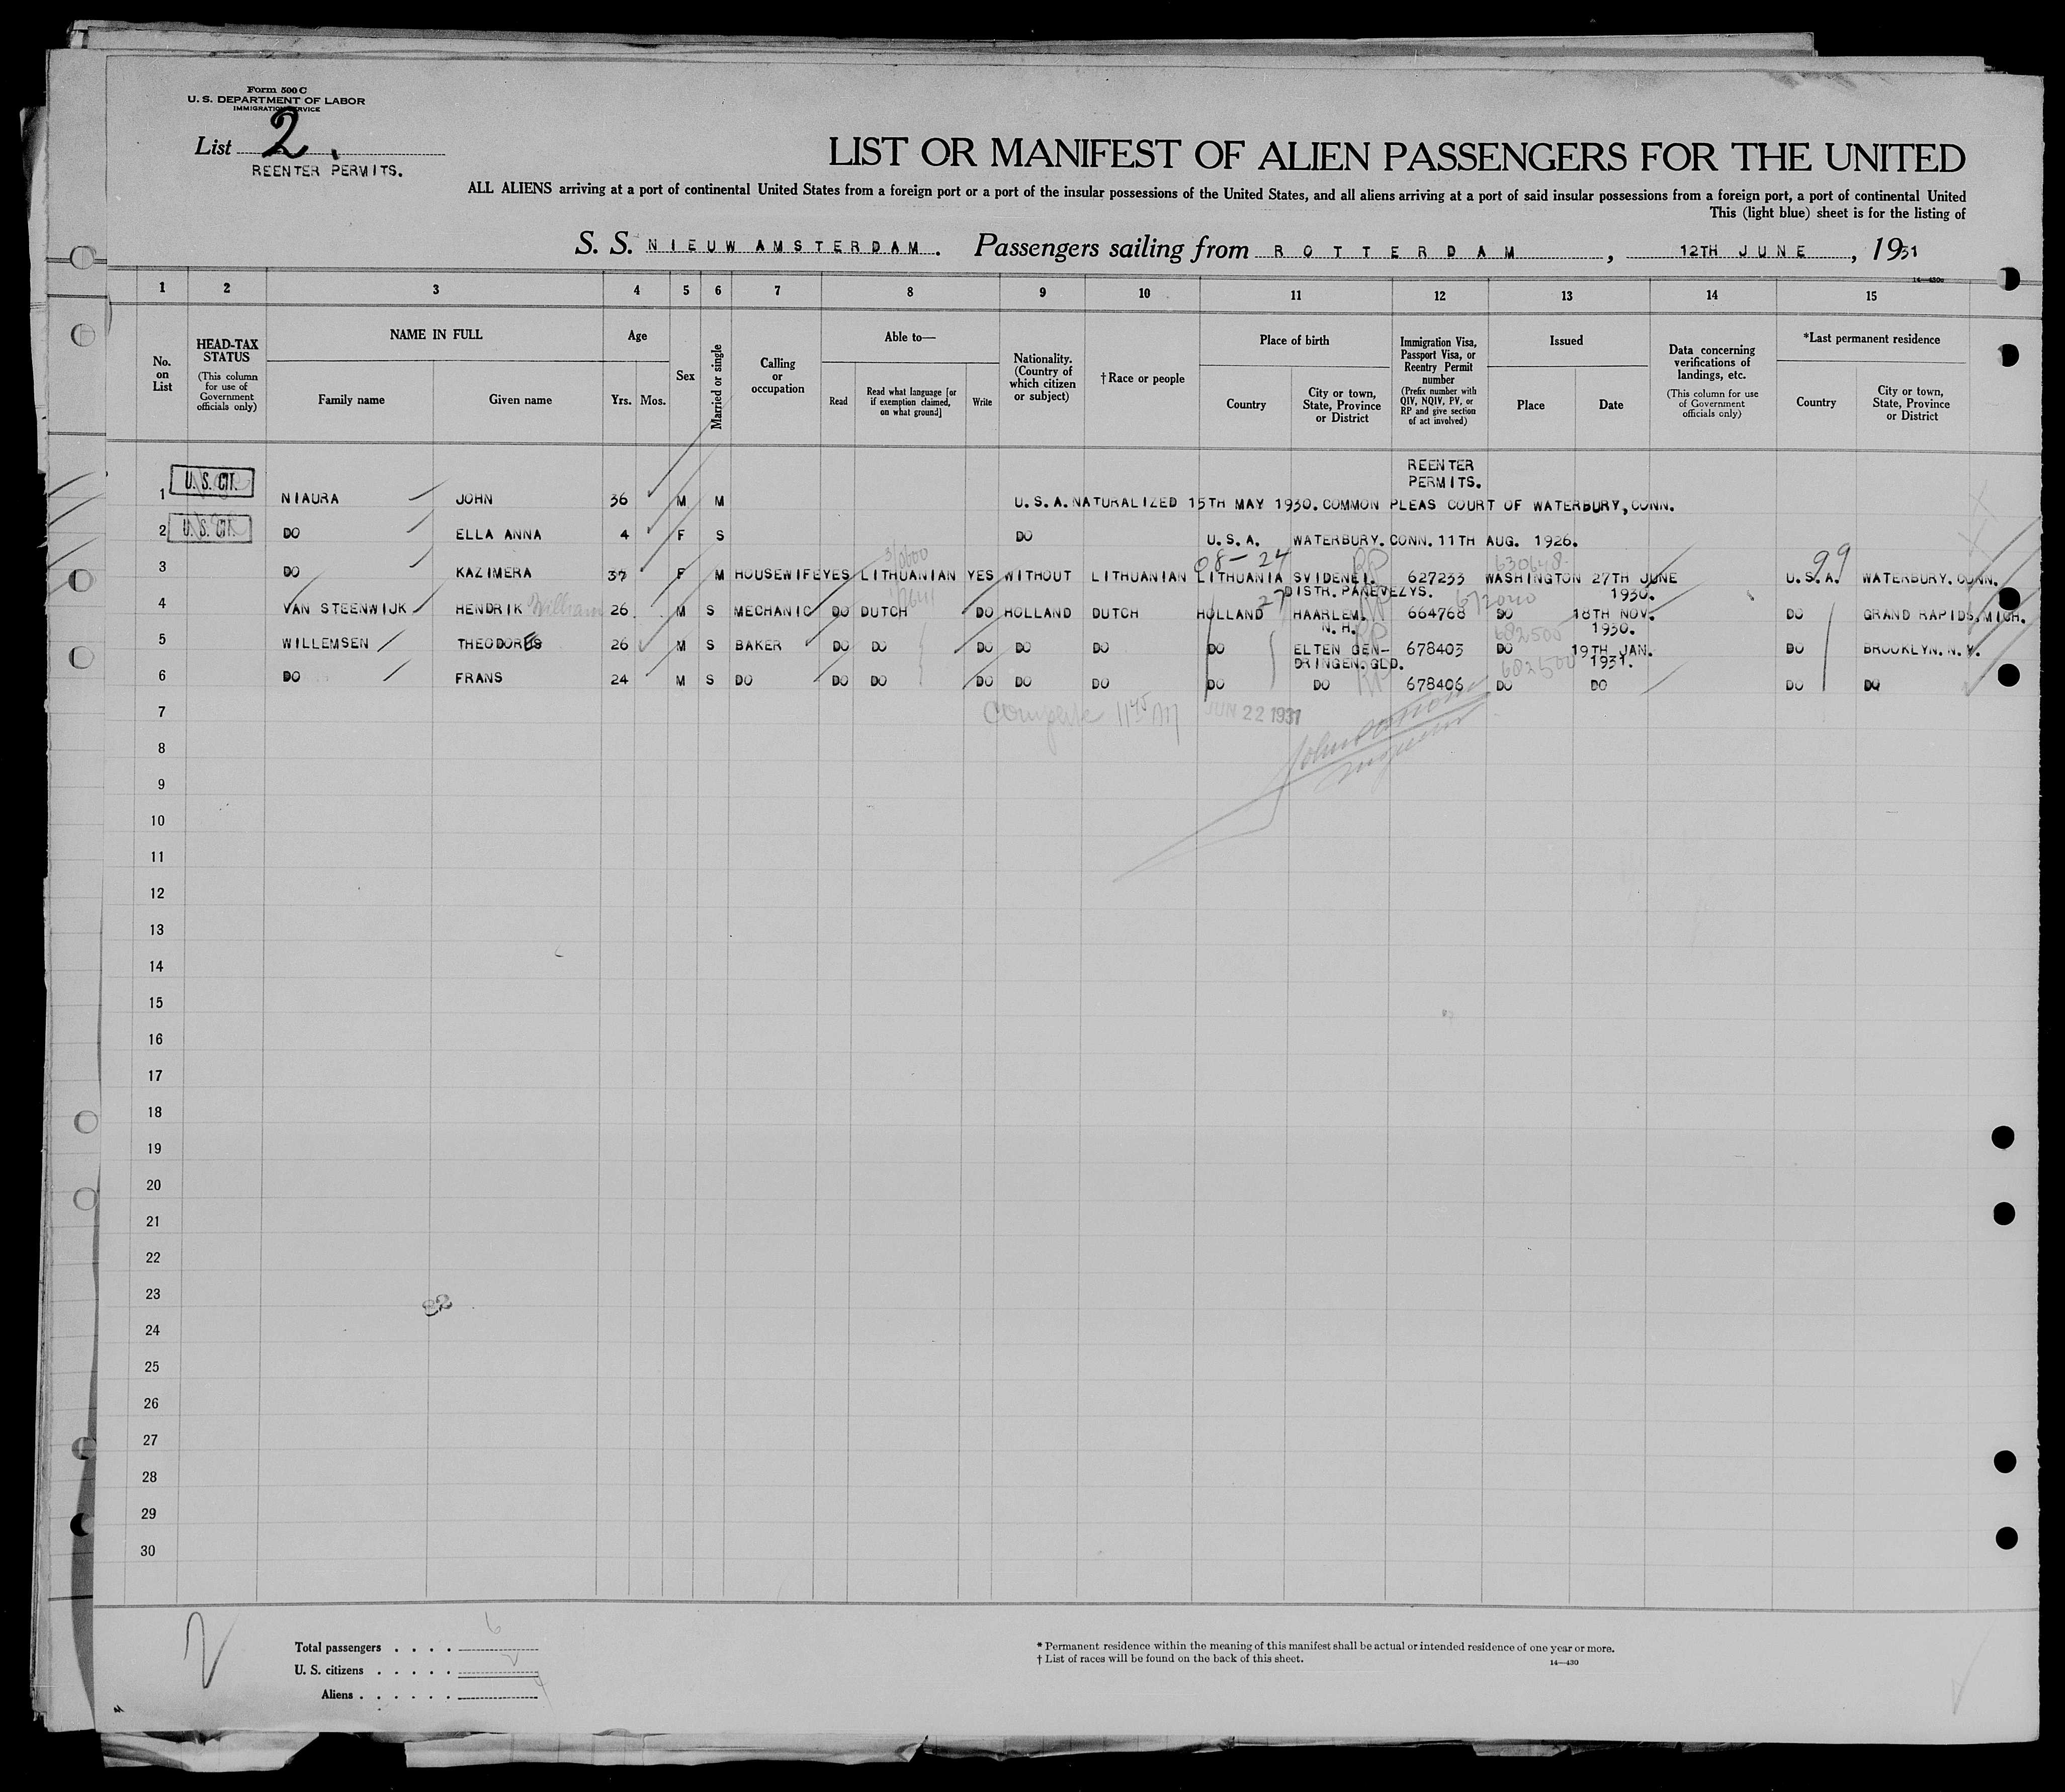 Form 500 C
U. S. DEPARTMENT OF LABOR
IMMIGRATION SERVICE
List 2.
REENTER PERMITS.
LIST OR MANIFEST OF ALIEN PASSENGERS FOR THE UNITED
ALL ALIENS arriving at a port of continental United States from a foreign port or a port of the insular possessions of the United States, and all aliens arriving at a port of said insular possessions from a foreign port, a port of continental United
This (light blue) sheet is for the listing of
S. S. NIEUW AMSTERDAM. Passengers sailing from ROTTERDAM, 12TH JUNE, 1931
14—430c
1 2 3 4 5 6 7 8 9 10 11 12 13 14 15
No. on List
HEAD-TAX STATUS (This column for use of Government officials only)
NAME IN FULL
Family name Given name
Age
Yrs. Mos.
Sex
Married or single
Calling or occupation
Able to—
Read Read what language [or if exemption claimed, on what ground] Write
Nationality. (Country of which citizen or subject)
†Race or people
Place of birth
Country City or town, State, Province or District
Immigration Visa, Passport Visa, or Reentry Permit number (Prefix number with QIV, NQIV, PV, or RP and give section of act involved)
Issued
Place Date
Data concerning verifications of landings, etc. (This column for use of Government officials only)
*Last permanent residence
Country City or town, State, Province or District
REENTER
PERMITS.
1 U. S. CIT. NIAURA JOHN 36 M M U.S.A. NATURALIZED 15TH MAY 1930. COMMON PLEAS COURT OF WATERBURY, CONN.
2 U. S. CIT. DO ELLA ANNA 4 F S DO U.S.A. WATERBURY. CONN. 11TH AUG. 1926.
08-24 RP 630648 99
3 DO KAZIMERA 37 F M HOUSEWIFE YES LITHUANIAN YES WITHOUT LITHUANIAN LITHUANIA SVIDENEI. 627233 WASHINGTON 27TH JUNE U.S.A. WATERBURY. CONN.
DISTR. PANEVEZYS. 1930.
4 VAN STEENWIJK HENDRIK William 26 M S MECHANIC DO DUTCH DO HOLLAND DUTCH HOLLAND HAARLEM. 664768 DO 18TH NOV. DO GRAND RAPIDS, MICH.
27 N. H. RP 672040 1930.
5 WILLEMSEN THEODORES 26 M S BAKER DO DO DO DO DO DO ELTEN GEN- 678403 DO 19TH JAN. DO BROOKLYN. N. Y.
DRINGEN. GLD. RP 682500 1931.
6 DO FRANS 24 M S DO DO DO DO DO DO DO DO RP 678406 682500 DO DO DO DO
7 Complete 11 45 AM JUN 22 1931
8
9
10
11
12
13
14
15
16
17
18
19
20
21
22
23
24
25
26
27
28
29
30
Total passengers . . . . 6
U. S. citizens . . . . . 2
Aliens . . . . . . 4
* Permanent residence within the meaning of this manifest shall be actual or intended residence of one year or more.
† List of races will be found on the back of this sheet.
14—430